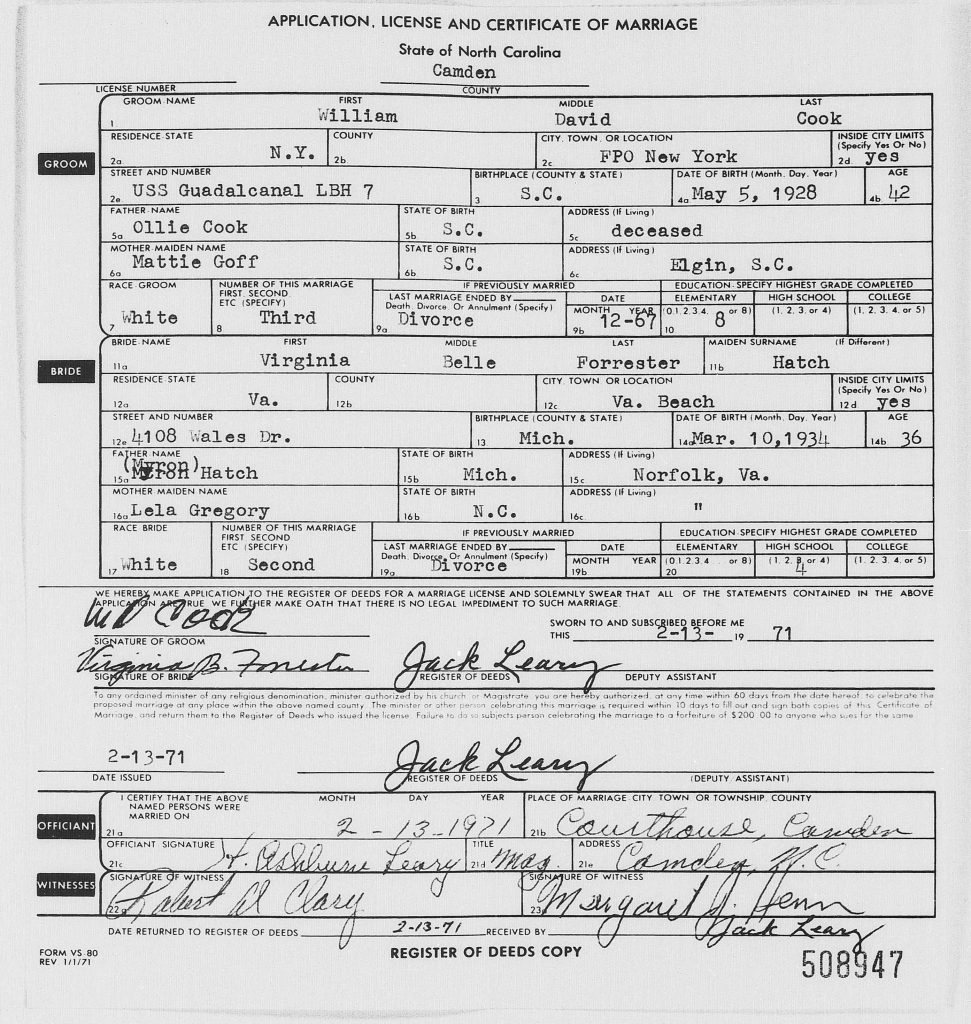 APPLICATION, LICENSE AND CERTIFICATE OF MARRIAGE
State of North Carolina
Camden
LICENSE NUMBER COUNTY
GROOM-NAME FIRST MIDDLE LAST
1 William David Cook
RESIDENCE-STATE COUNTY CITY, TOWN, OR LOCATION INSIDE CITY LIMITS (Specify Yes Or No)
GROOM
2a. N.Y. 2b. 2c. FPO New York 2d. yes
STREET AND NUMBER BIRTHPLACE (COUNTY & STATE) DATE OF BIRTH (Month, Day, Year) AGE
2e. USS Guadalcanal LBH 7 3 S.C. 4a May 5, 1928 4b. 42
FATHER-NAME STATE OF BIRTH ADDRESS (If Living)
5a Ollie Cook 5b S.C. 5c. deceased
MOTHER-MAIDEN NAME STATE OF BIRTH ADDRESS (If Living)
6a Mattie Goff 6b. S.C. 6c Elgin, S.C.
RACE-GROOM NUMBER OF THIS MARRIAGE IF PREVIOUSLY MARRIED EDUCATION-SPECIFY HIGHEST GRADE COMPLETED
FIRST, SECOND, ETC (SPECIFY) LAST MARRIAGE ENDED BY DATE ELEMENTARY HIGH SCHOOL COLLEGE
Death, Divorce, Or Annulment (Specify) MONTH YEAR (0.1.2.3.4. or 8) (1. 2. 3. or 4) (1. 2. 3. 4. or 5)
7 White 8 Third 9a Divorce 9b 12-67 10 8
BRIDE-NAME FIRST MIDDLE LAST MAIDEN SURNAME (If Different)
11a Virginia Belle Forrester 11b Hatch
BRIDE
RESIDENCE-STATE COUNTY CITY, TOWN, OR LOCATION INSIDE CITY LIMITS (Specify Yes Or No)
12a Va. 12b 12c Va. Beach 12d yes
STREET AND NUMBER BIRTHPLACE (COUNTY & STATE) DATE OF BIRTH (Month, Day, Year) AGE
12e 4108 Wales Dr. 13 Mich. 14a Mar. 10,1934 14b 36
FATHER NAME STATE OF BIRTH ADDRESS (If Living)
(Myron)
15a Myron Hatch 15b Mich. 15c Norfolk, Va.
MOTHER-MAIDEN NAME STATE OF BIRTH ADDRESS (If Living)
16a Lela Gregory 16b N.C. 16c. "
RACE BRIDE NUMBER OF THIS MARRIAGE IF PREVIOUSLY MARRIED EDUCATION-SPECIFY HIGHEST GRADE COMPLETED
FIRST, SECOND ETC (SPECIFY) LAST MARRIAGE ENDED BY DATE ELEMENTARY HIGH SCHOOL COLLEGE
Death, Divorce, Or Annulment (Specify) MONTH YEAR (0.1.2.3.4 . or 8) (1. 2. 3. or 4) (1. 2. 3. 4. or 5)
17 White 18 Second 19a Divorce 19b. 20 4
WE HEREBY MAKE APPLICATION TO THE REGISTER OF DEEDS FOR A MARRIAGE LICENSE AND SOLEMNLY SWEAR THAT ALL OF THE STATEMENTS CONTAINED IN THE ABOVE
APPLICATION ARE TRUE. WE FURTHER MAKE OATH THAT THERE IS NO LEGAL IMPEDIMENT TO SUCH MARRIAGE.
W D Cook SWORN TO AND SUBSCRIBED BEFORE ME
SIGNATURE OF GROOM THIS 2-13- 19 71
Virginia B. Forrester Jack Leary
SIGNATURE OF BRIDE REGISTER OF DEEDS DEPUTY ASSISTANT
To any ordained minister of any religious denomination, minister authorized by his church, or Magistrate, you are hereby authorized, at any time within 60 days from the date hereof, to celebrate the
proposed marriage at any place within the above named county. The minister or other person celebrating this marriage is required within 10 days to fill out and sign both copies of this Certificate of
Marriage, and return them to the Register of Deeds who issued the license. Failure to do so subjects person celebrating the marriage to a forfeiture of $200.00 to anyone who sues for the same.
2-13-71 Jack Leary
DATE ISSUED REGISTER OF DEEDS (DEPUTY ASSISTANT)
I CERTIFY THAT THE ABOVE NAMED PERSONS WERE MARRIED ON MONTH DAY YEAR PLACE OF MARRIAGE-CITY, TOWN, OR TOWNSHIP, COUNTY
OFFICIANT
21a 2 - 13-1971 21b Courthouse, Camden
OFFICIANT SIGNATURE TITLE ADDRESS
21c H. Ashburn Leary 21d Mag. 21e Camden, N.C.
WITNESSES
SIGNATURE OF WITNESS SIGNATURE OF WITNESS
22a Robert W Clary 23a Margaret J. Henn
DATE RETURNED TO REGISTER OF DEEDS 2-13-71 RECEIVED BY Jack Leary
FORM VS-80
REV 1/1/71
REGISTER OF DEEDS COPY
508947